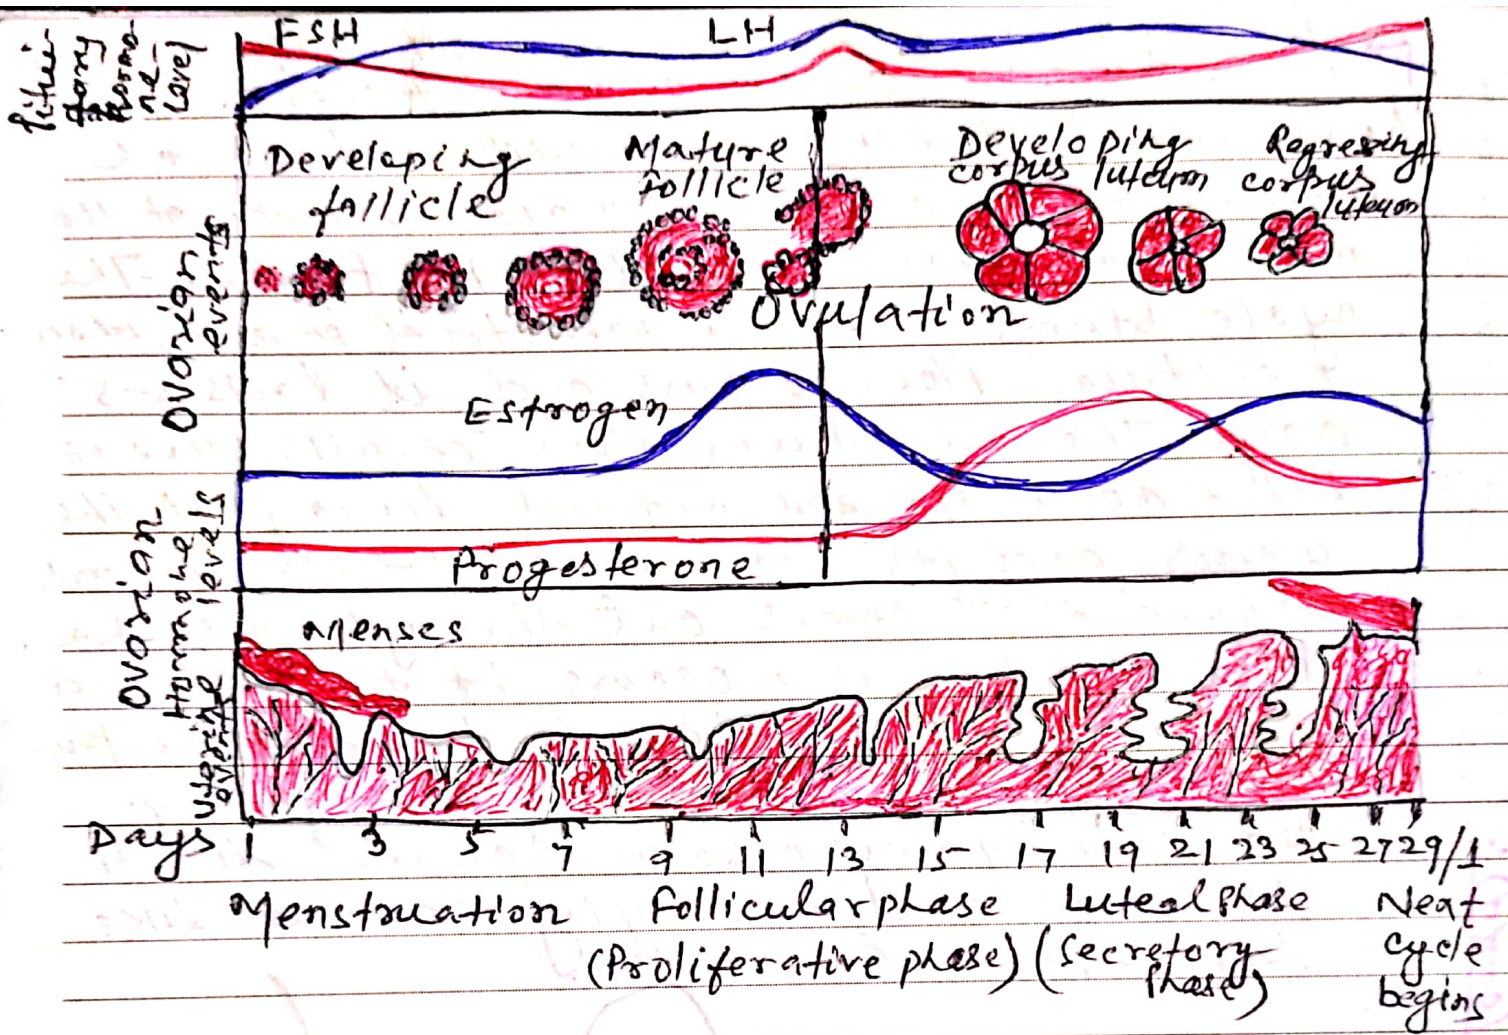 Pitui-
tary
Hormo-
ne
Level
FSH
LH
Ovarian
events
Developing
follicle
Mature
follicle
Ovulation
Developing
corpus luteum
Regressing
corpus
luteum
Ovarian
Hormone
levels
Estrogen
Progesterone
Uterine
events
Menses
Days 1 3 5 7 9 11 13 15 17 19 21 23 25 27 29/1
Menstruation Follicular phase Luteal phase Next
(Proliferative phase) (Secretory cycle
phase) begins